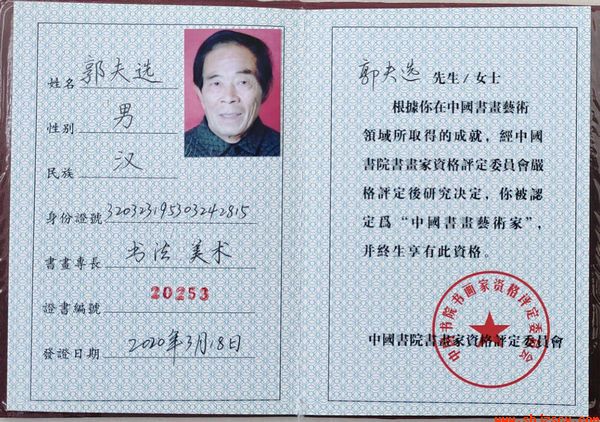 姓名 郭夫选
性别 男
民族 汉
身份證號 320323195303242815
書畫專長 书法 美术
證書編號 20253
發證日期 2020年3月18日
郭夫选 先生/女士
根據你在中國書畫藝術
領域所取得的成就，經中國
書院書畫家資格評定委員會嚴
格評定後研究决定，你被認
定爲“中國書畫藝術家”，
并終生享有此資格。
中國書院書畫家資格評定委員會
中国书院书画家资格评定委员会